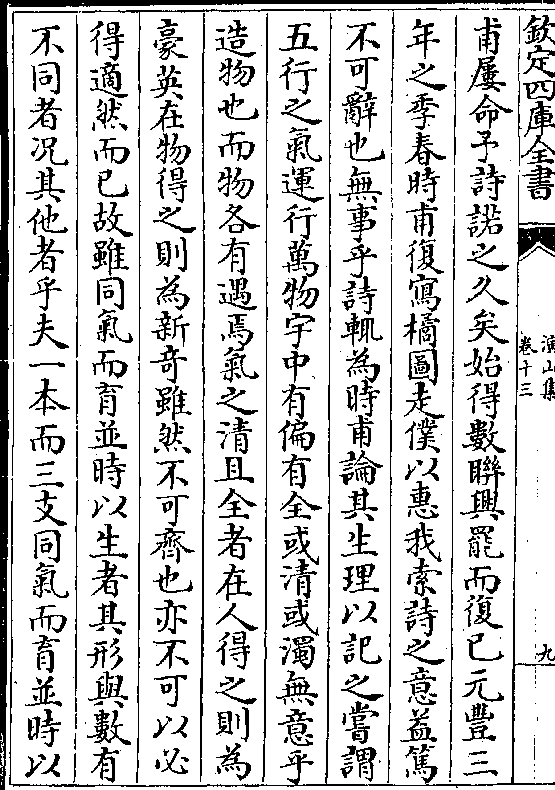 欽定四庫全書
演山集
卷十三
九
甫屢命予詩諾之久矣始得數聯興罷而復已元豐三
年之季春時甫復寫橘圖走僕以惠我索詩之意益篤
不可辭也無事乎詩輒為時甫論其生理以記之嘗謂
五行之氣運行萬物宇中有偏有全或清或濁無意乎
造物也而物各有遇焉氣之清且全者在人得之則為
豪英在物得之則為新奇雖然不可齊也亦不可以必
得適然而已故雖同氣而育並時以生者其形與數有
不同者况其他者乎夫一本而三支同氣而育並時以